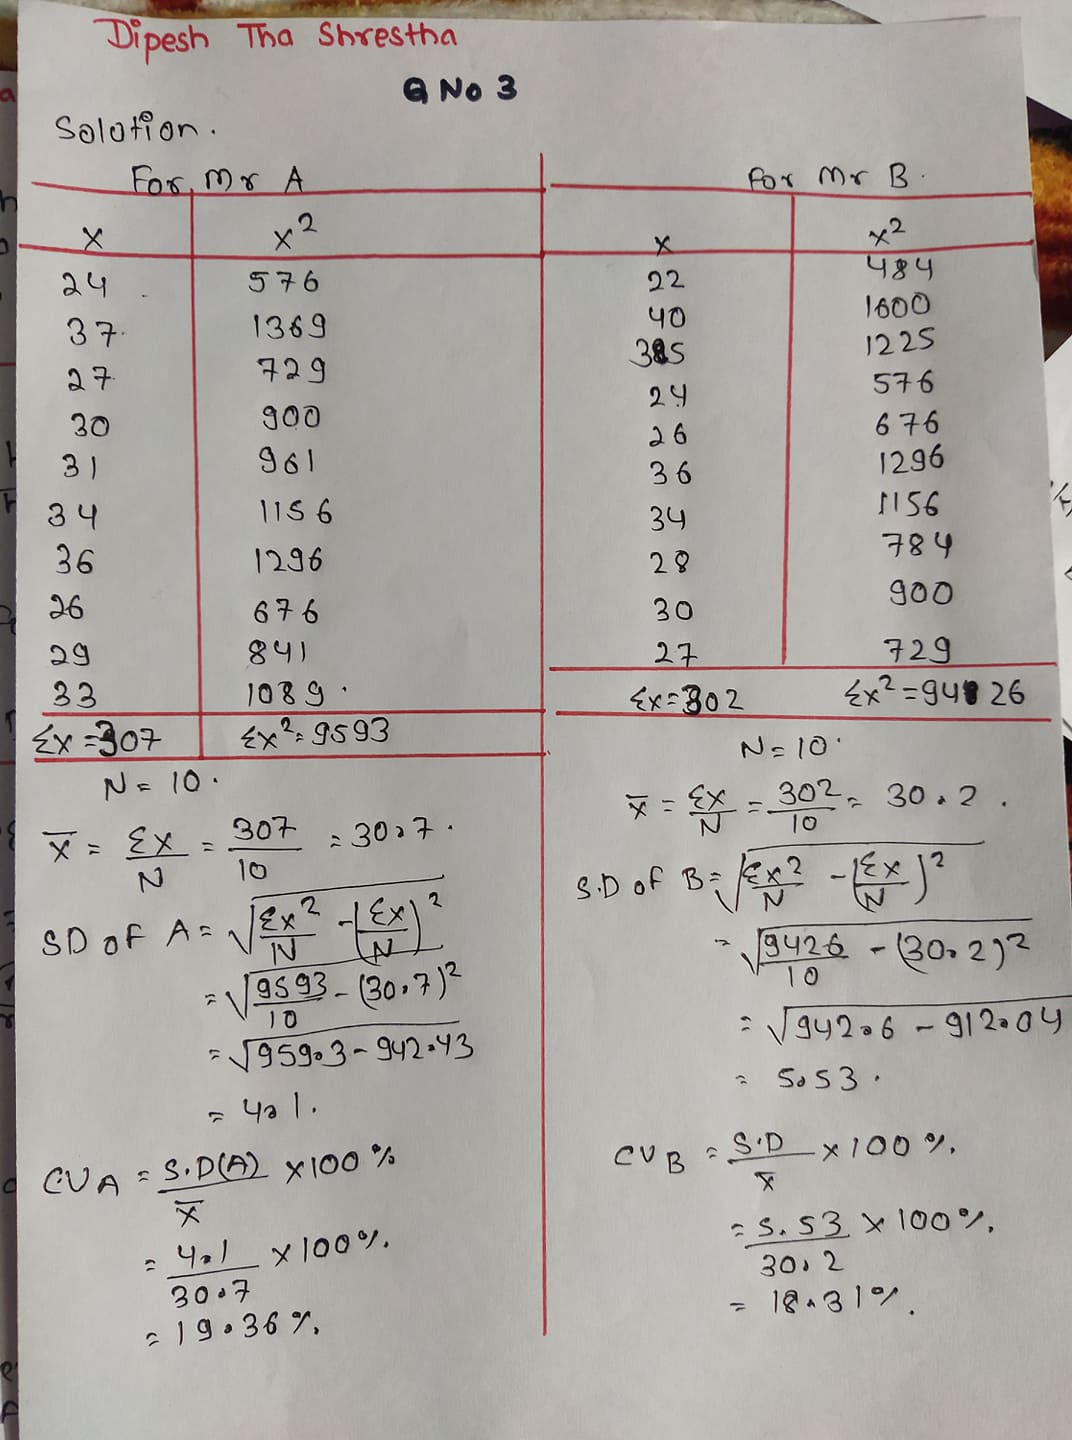 Dipesh Tha Shrestha
Q No 3
Solution.
For Mr A
x x²
24 576
37 1369
27 729
30 900
31 961
34 1156
36 1296
26 676
29 841
33 1089
Σx = 307 Σx² = 9593
N = 10.
x̄ = Σx/N = 307/10 = 30.7.
SD of A = √(Σx²/N - (Σx/N)²)
= √(9593/10 - (30.7)²)
= √(959.3 - 942.43)
= 4.1.
CV A = S.D(A)/x̄ × 100%
= 4.1/30.7 × 100%.
= 19.36%.
For Mr B.
x x²
22 484
40 1600
35 1225
24 576
26 676
36 1296
34 1156
28 784
30 900
27 729
Σx = 302 Σx² = 9426
N = 10.
x̄ = Σx/N = 302/10 = 30.2.
S.D of B = √(Σx²/N - (Σx/N)²)
= √(9426/10 - (30.2)²)
= √(942.6 - 912.04
= 5.53.
CV B = S.D/x̄ × 100%.
= 5.53/30.2 × 100%.
= 18.31%.